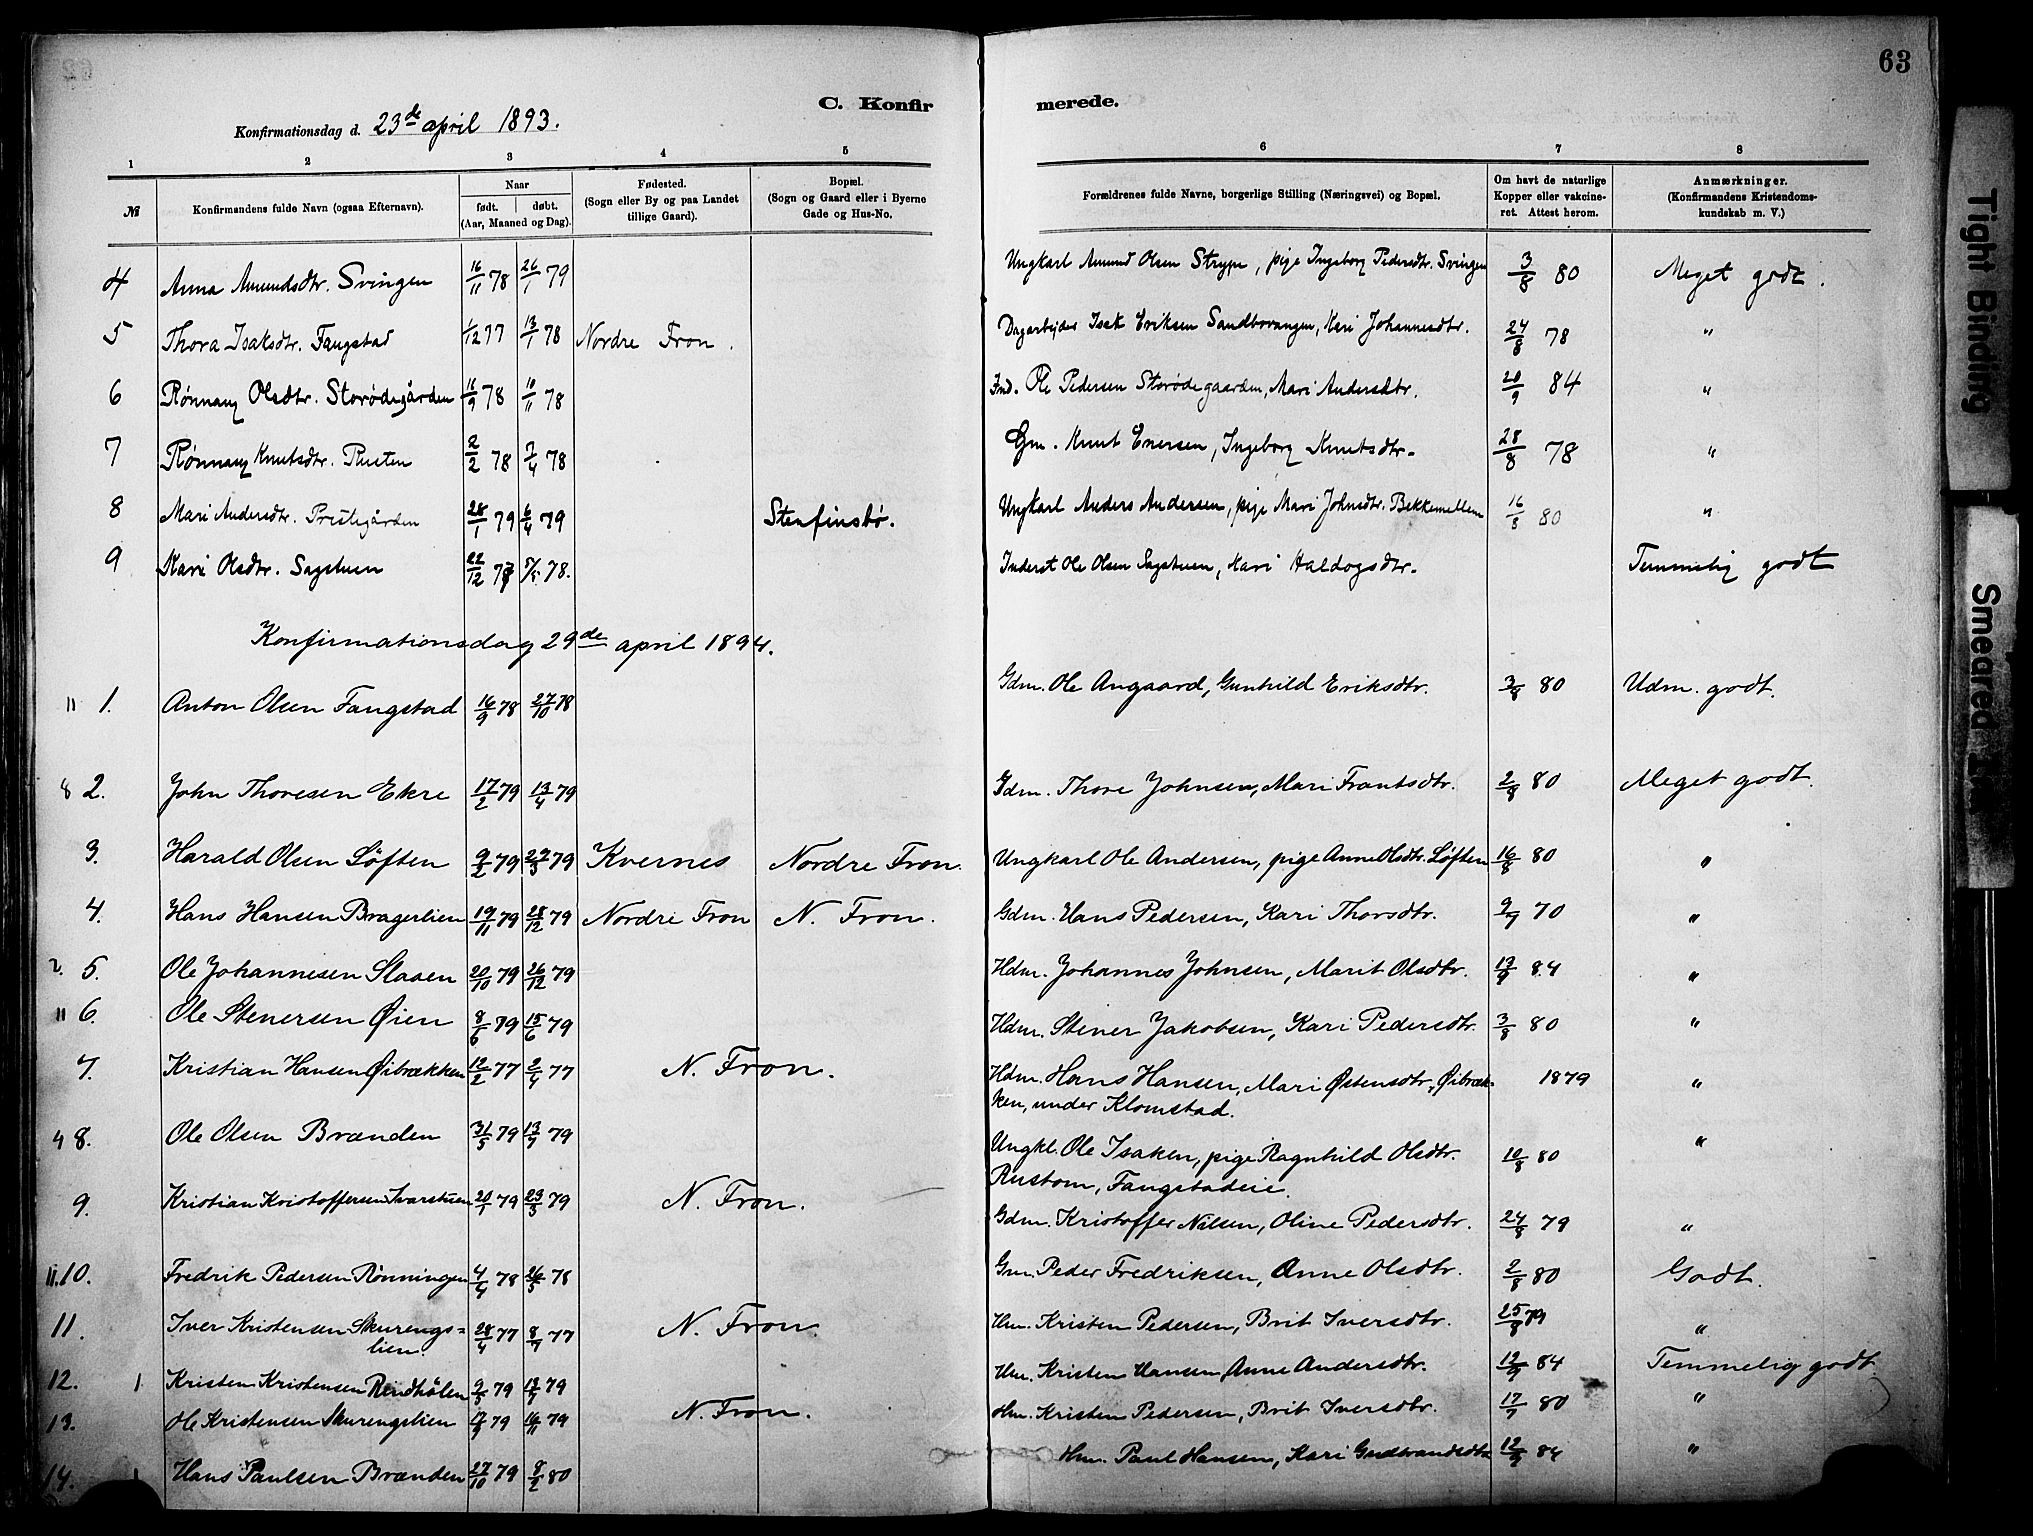 63
C. Konfirmerede.
Konfirmationsdag d. 23de april 1893.
1 2 3 4 5 6 7 8
№ Konfirmandens fulde Navn (ogsaa Efternavn). Naar født. døbt. (Aar, Maaned og Dag). Fødested. (Sogn eller By og paa Landet tillige Gaard). Bopæl. (Sogn og Gaard eller i Byerne Gade og Hus-No. Forældrenes fulde Navne, borgerlige Stilling (Næringsvei) og Bopæl. Om havt de naturlige Kopper eller vakcineret. Attest herom. Anmærkninger. (Konfirmandens Kristendomskundskab m. V.)
4 Anna Amundsdtr. Svingen 16/11 78 26/1 79 Ungkarl Amund Olsen Strype, pige Ingeborg Pedersdtr. Svingen 3/8 80 Meget godt.
5 Thora Isaksdtr. Fangstad 1/12 77 13/1 78 Nordre Fron. Dagarbejder Isak Eriksen Sandbovangen, Kari Johannesdtr. 24/8 78 "
6 Rønnaug Olsdtr. Storødegården 16/9 78 10/11 78 Ind. Ole Pedersen Storødegaarden, Mari Andersdtr. 20/9 84 "
7 Rønnaug Knutsdtr. Rusten 2/2 78 7/4 78 Gm. Knut Enersen, Ingeborg Knutsdtr. 28/8 78 "
8 Mari Andersdtr. Prestegården 28/1 79 6/4 79 Stenfinsbø. Ungkarl Anders Andersen, pige Mari Johnsdtr. Bekkemellem 16/8 80 "
9 Kari Olsdtr. Sagstuen 22/12 77 5/5 78. Inderst Ole Olsen Sagstuen, Kari Haldogsdtr. Temmelig godt
Konfirmationsdag 29de april 1894.
11 1. Anton Olsen Fangstad 16/9 78 27/10 78 Gdm. Ole Angaard, Gunhild Eriksdtr. 3/8 80 Udm. godt.
8 2. John Thoresen Ekre 17/2 79 13/4 79 Gdm. Thore Johnsen, Mari Frantsdtr. 2/8 80 Meget godt.
3. Harald Olsen Løften 9/2 79 29/3 79 Kvernes Nordre Fron. Ungkarl Ole Andersen, pige Anne Olsdtr. Løften 16/8 80 "
4. Hans Hansen Bragerlien 19/11 79 28/12 79 Nordre Fron N. Fron. Gdm. Hans Pedersen, Kari Thorsdtr. 9/7 70 "
2. 5. Ole Johannesen Slaaen 20/10 79 26/12 79 Hdm. Johannes Johnsen, Marit Olsdtr. 13/9 84 "
11 6. Ole Stenersen Øien 8/6 79 15/6 79 Hdm. Stener Jakobsen, Kari Pedersdtr. 3/8 80 "
7. Kristian Hansen Øibrækken 12/2 77 2/4 77 N. Fron. Hdm. Hans Hansen, Mari Østensdtr, Øibræk-
ken, under Klomstad. 1879 "
4 8. Ole Olsen Brænden 31/5 79 13/7 79 Ungkl. Ole Isaken, pige Ragnhild Olsdtr.
Rustom, Fangstadeie. 10/8 80 "
9. Kristian Kristoffersen Ivarstuen 20/1 79 23/3 79 N. Fron. Gdm. Kristoffer Nilsen, Oline Pedersdtr. 24/8 79 "
11. 10. Fredrik Pedersen Rønningen 4/4 78 26/5 78 Gm. Peder Fredriksen, Anne Olsdtr. 2/8 80 Godt.
11. Iver Kristensen Skurengs=
lien. 28/4 77 8/7 77 N. Fron. Hm. Kristen Pedersen, Brit Iversdtr. 25/8 79 "
12. 1 Kristen Kristensen Rindhølen 9/3 79 13/7 79 Hm. Kristen Hansen Anne Andersdtr. 12/9 84 Temmelig godt
13. Ole Kristensen Skurengslien 17/9 79 16/11 79 N. Fron. Hm. Kristen Pedersen, Brit Iversdtr. 17/7 80 "
14. 1 Hans Paulsen Brænden 27/10 79 8/2 80 Hm. Paul Hansen, Kari Gudbrandsdtr. 12/9 84 "
Tight Binding
Smeared